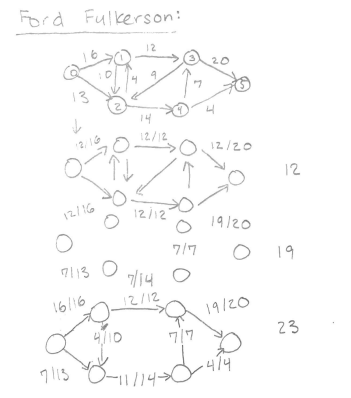 Ford Fulkerson:
16 12 20
0 1 3 5
10 4 9 7
13 2 4 4
14
12/16 12/12 12/20
12
12/16 12/12
19/20
7/7 19
7/13 7/14
16/16 12/12 19/20
4/10 7/7 23
7/13 11/14 4/4